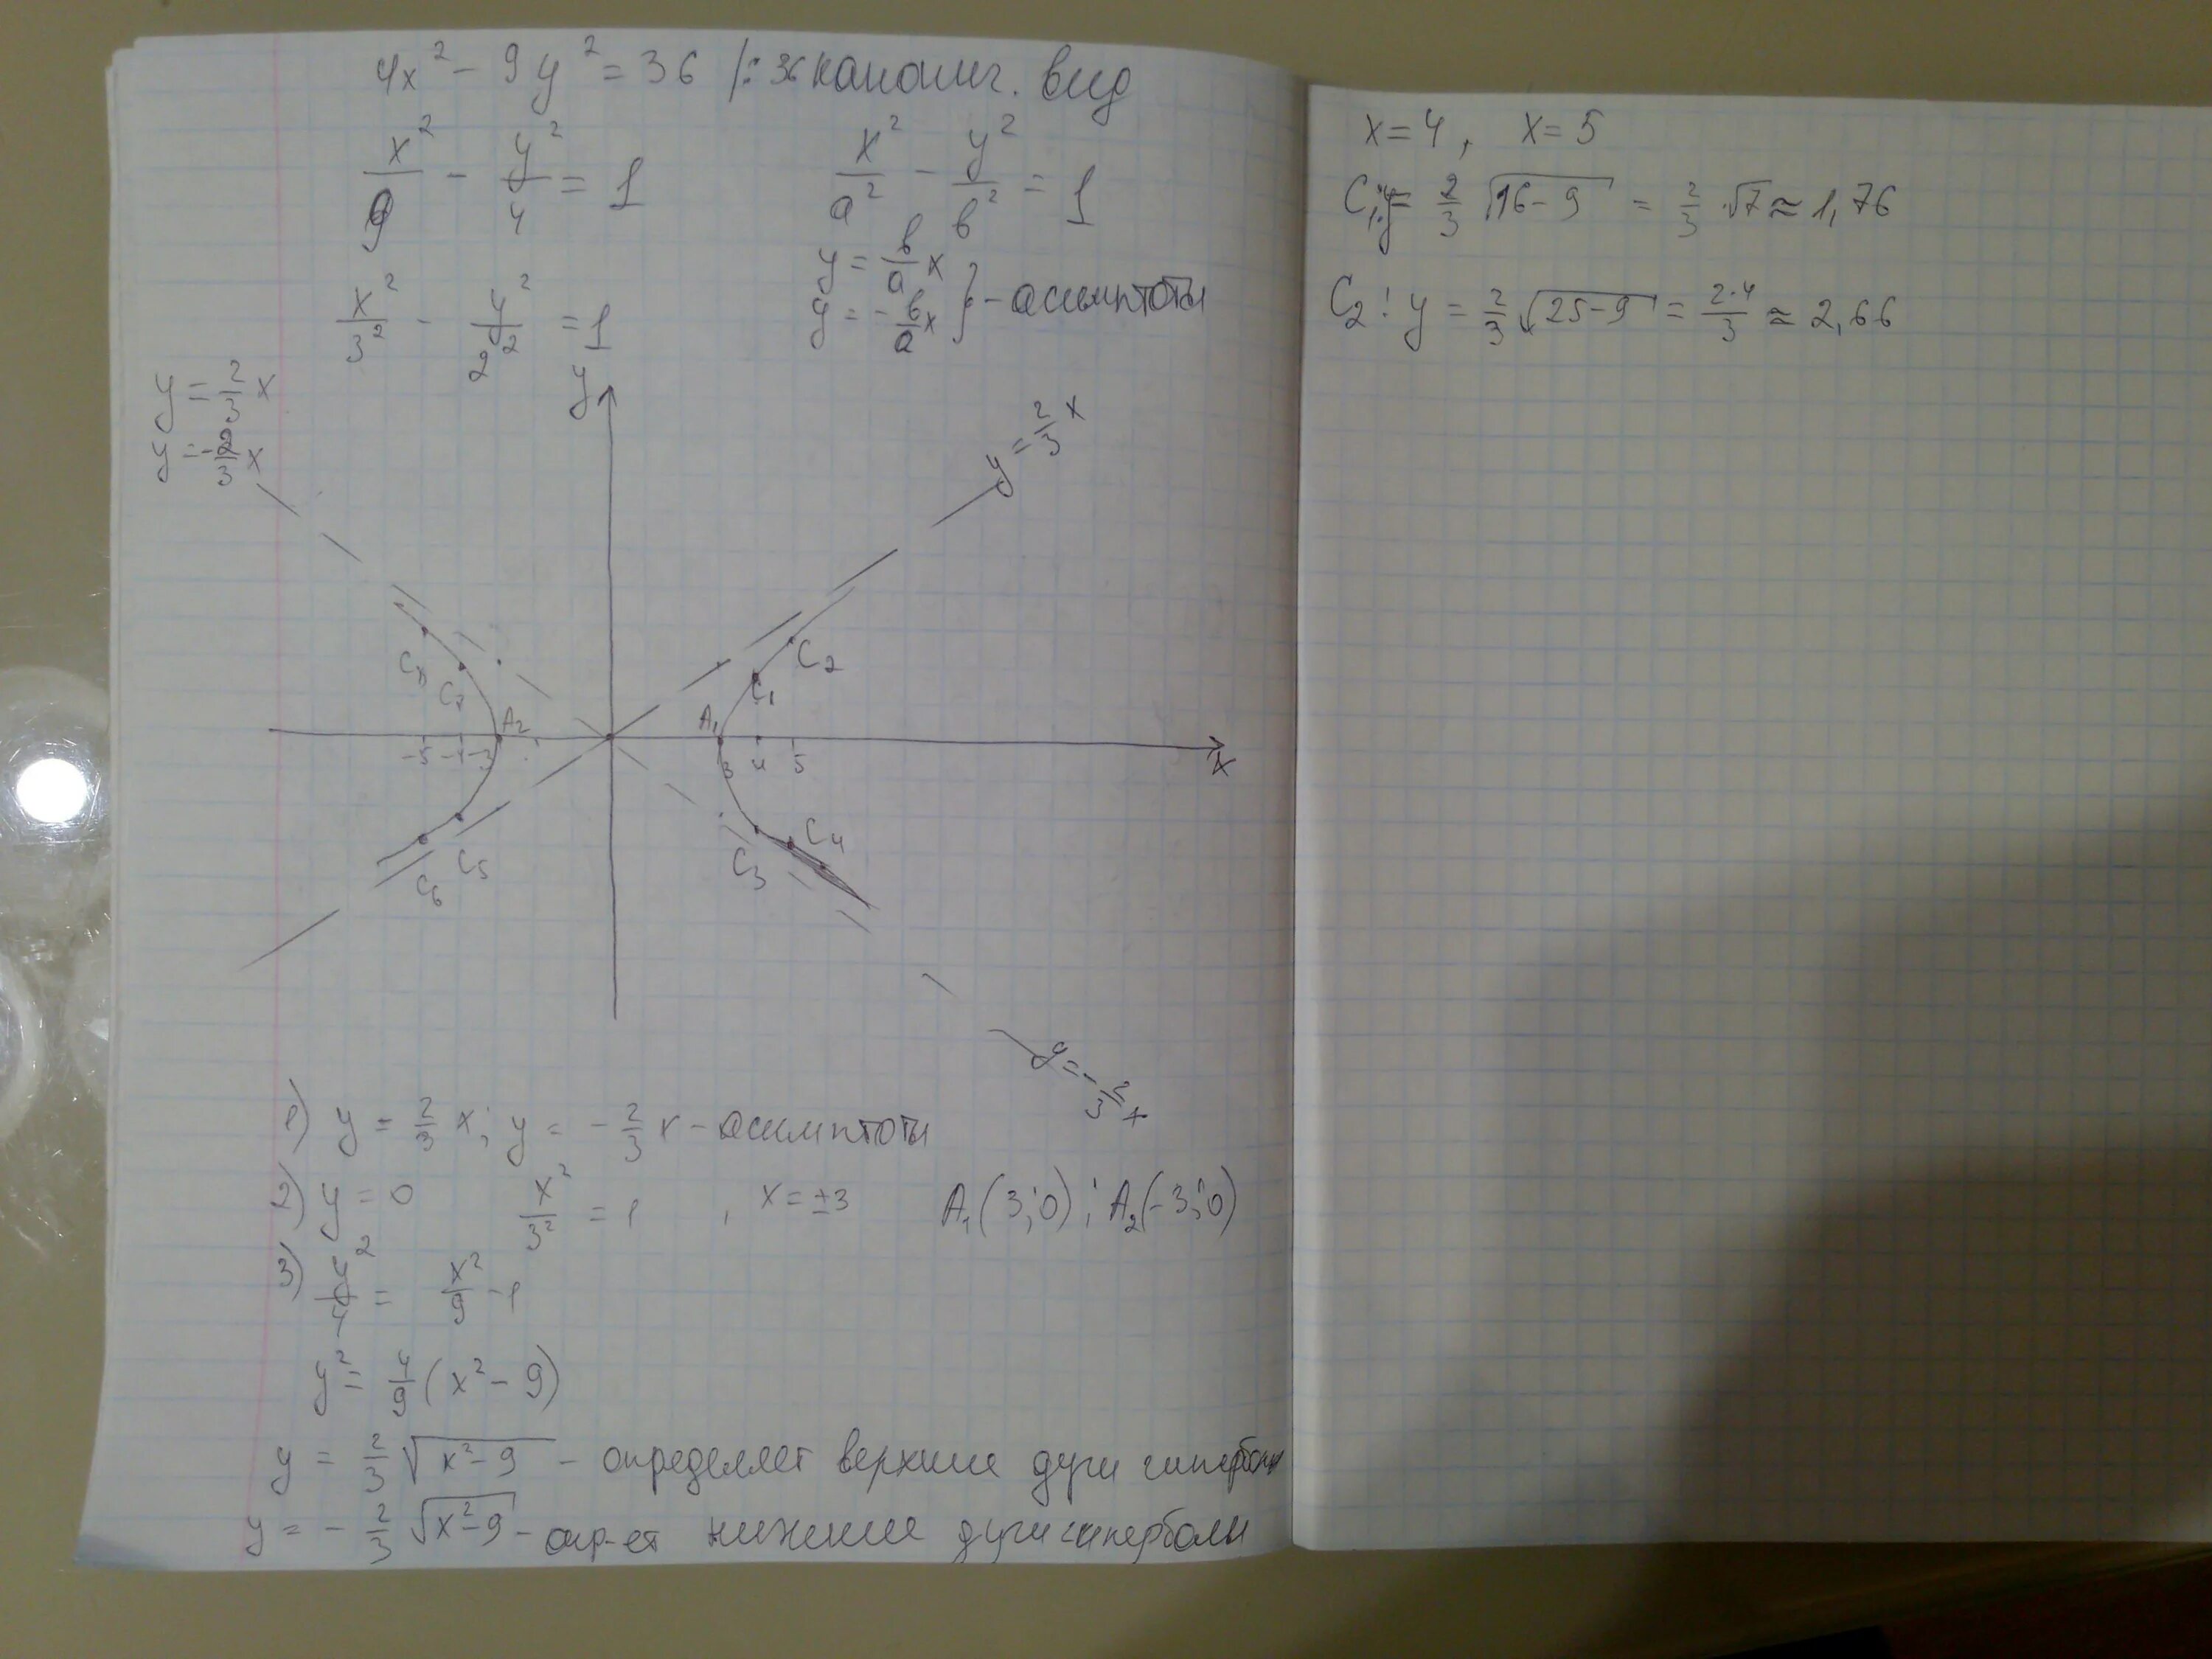 4x² - 9y² = 36 /: 36 канонич. вид
x²/9 - y²/4 = 1
x²/a² - y²/в² = 1
x²/3² - y²/2² = 1
y = в/a x
y = - в/a x } - асимптоты
y = 2/3 x
y = - 2/3 x
y
y = 2/3 x
C₂
C₁
C₂
A₂
A₁
-5 -4 -3
3 4 5
x
C₆
C₅
C₃
C₄
y = - 2/3 x
1) y = 2/3 x; y = - 2/3 x - асимптоты
2) y = 0 x²/3² = 1, x = ±3 A₁(3;0); A₂(-3;0)
3) y²/4 = x²/9 - 1
y² = 4/9 (x² - 9)
y = 2/3 √(x² - 9) - определяет верхние дуги гиперболы
y = - 2/3 √(x² - 9) - опр-ет нижние дуги гиперболы
x = 4, x = 5
C₁: y = 2/3 √(16 - 9) = 2/3 · √7 ≈ 1,76
C₂: y = 2/3 √(25 - 9) = 2·4/3 ≈ 2,66